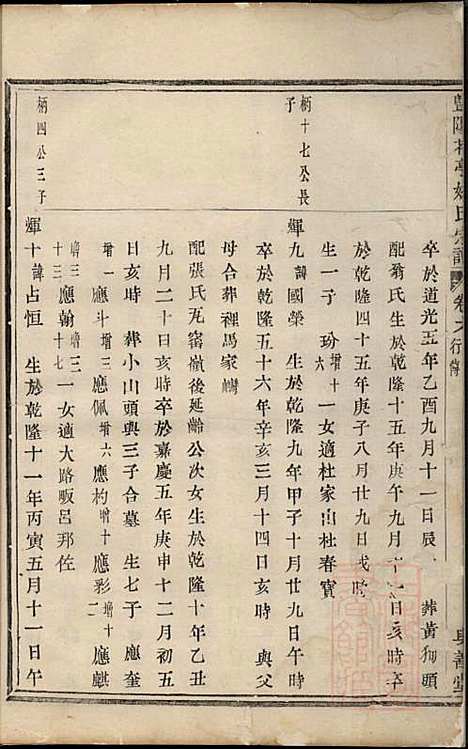 豐陽花亭姚氏宗譜 卷之 行傳 與善堂
卒於道光五年乙酉九月十一日辰 葬黃狗頭
配翁氏生於乾隆十五年庚午九月十一日亥時卒
於乾隆四十五年庚子八月廿九日戌時
生一子 玢增十六 一女適杜家山杜春寶
柄十七公長子
輝九諱國榮 生於乾隆九年甲子十月廿九日午時
卒於乾隆五十六年辛亥三月十四日亥時 與父
母合葬裡馬家嶹
配張氏瓦窰嶺後延齡公次女生於乾隆十年乙丑
九月二十日亥時卒於嘉慶五年庚申十二月初五
日亥時 葬小山頭與三子合墓 生七子 應奎
增一 應斗增三 應佩增六 應杓增十 應彩增十二 應麒
增十三 應翰增三十七 一女適大路畈呂邦佐
柄四公三子
輝十諱占恒 生於乾隆十一年丙寅五月十一日午